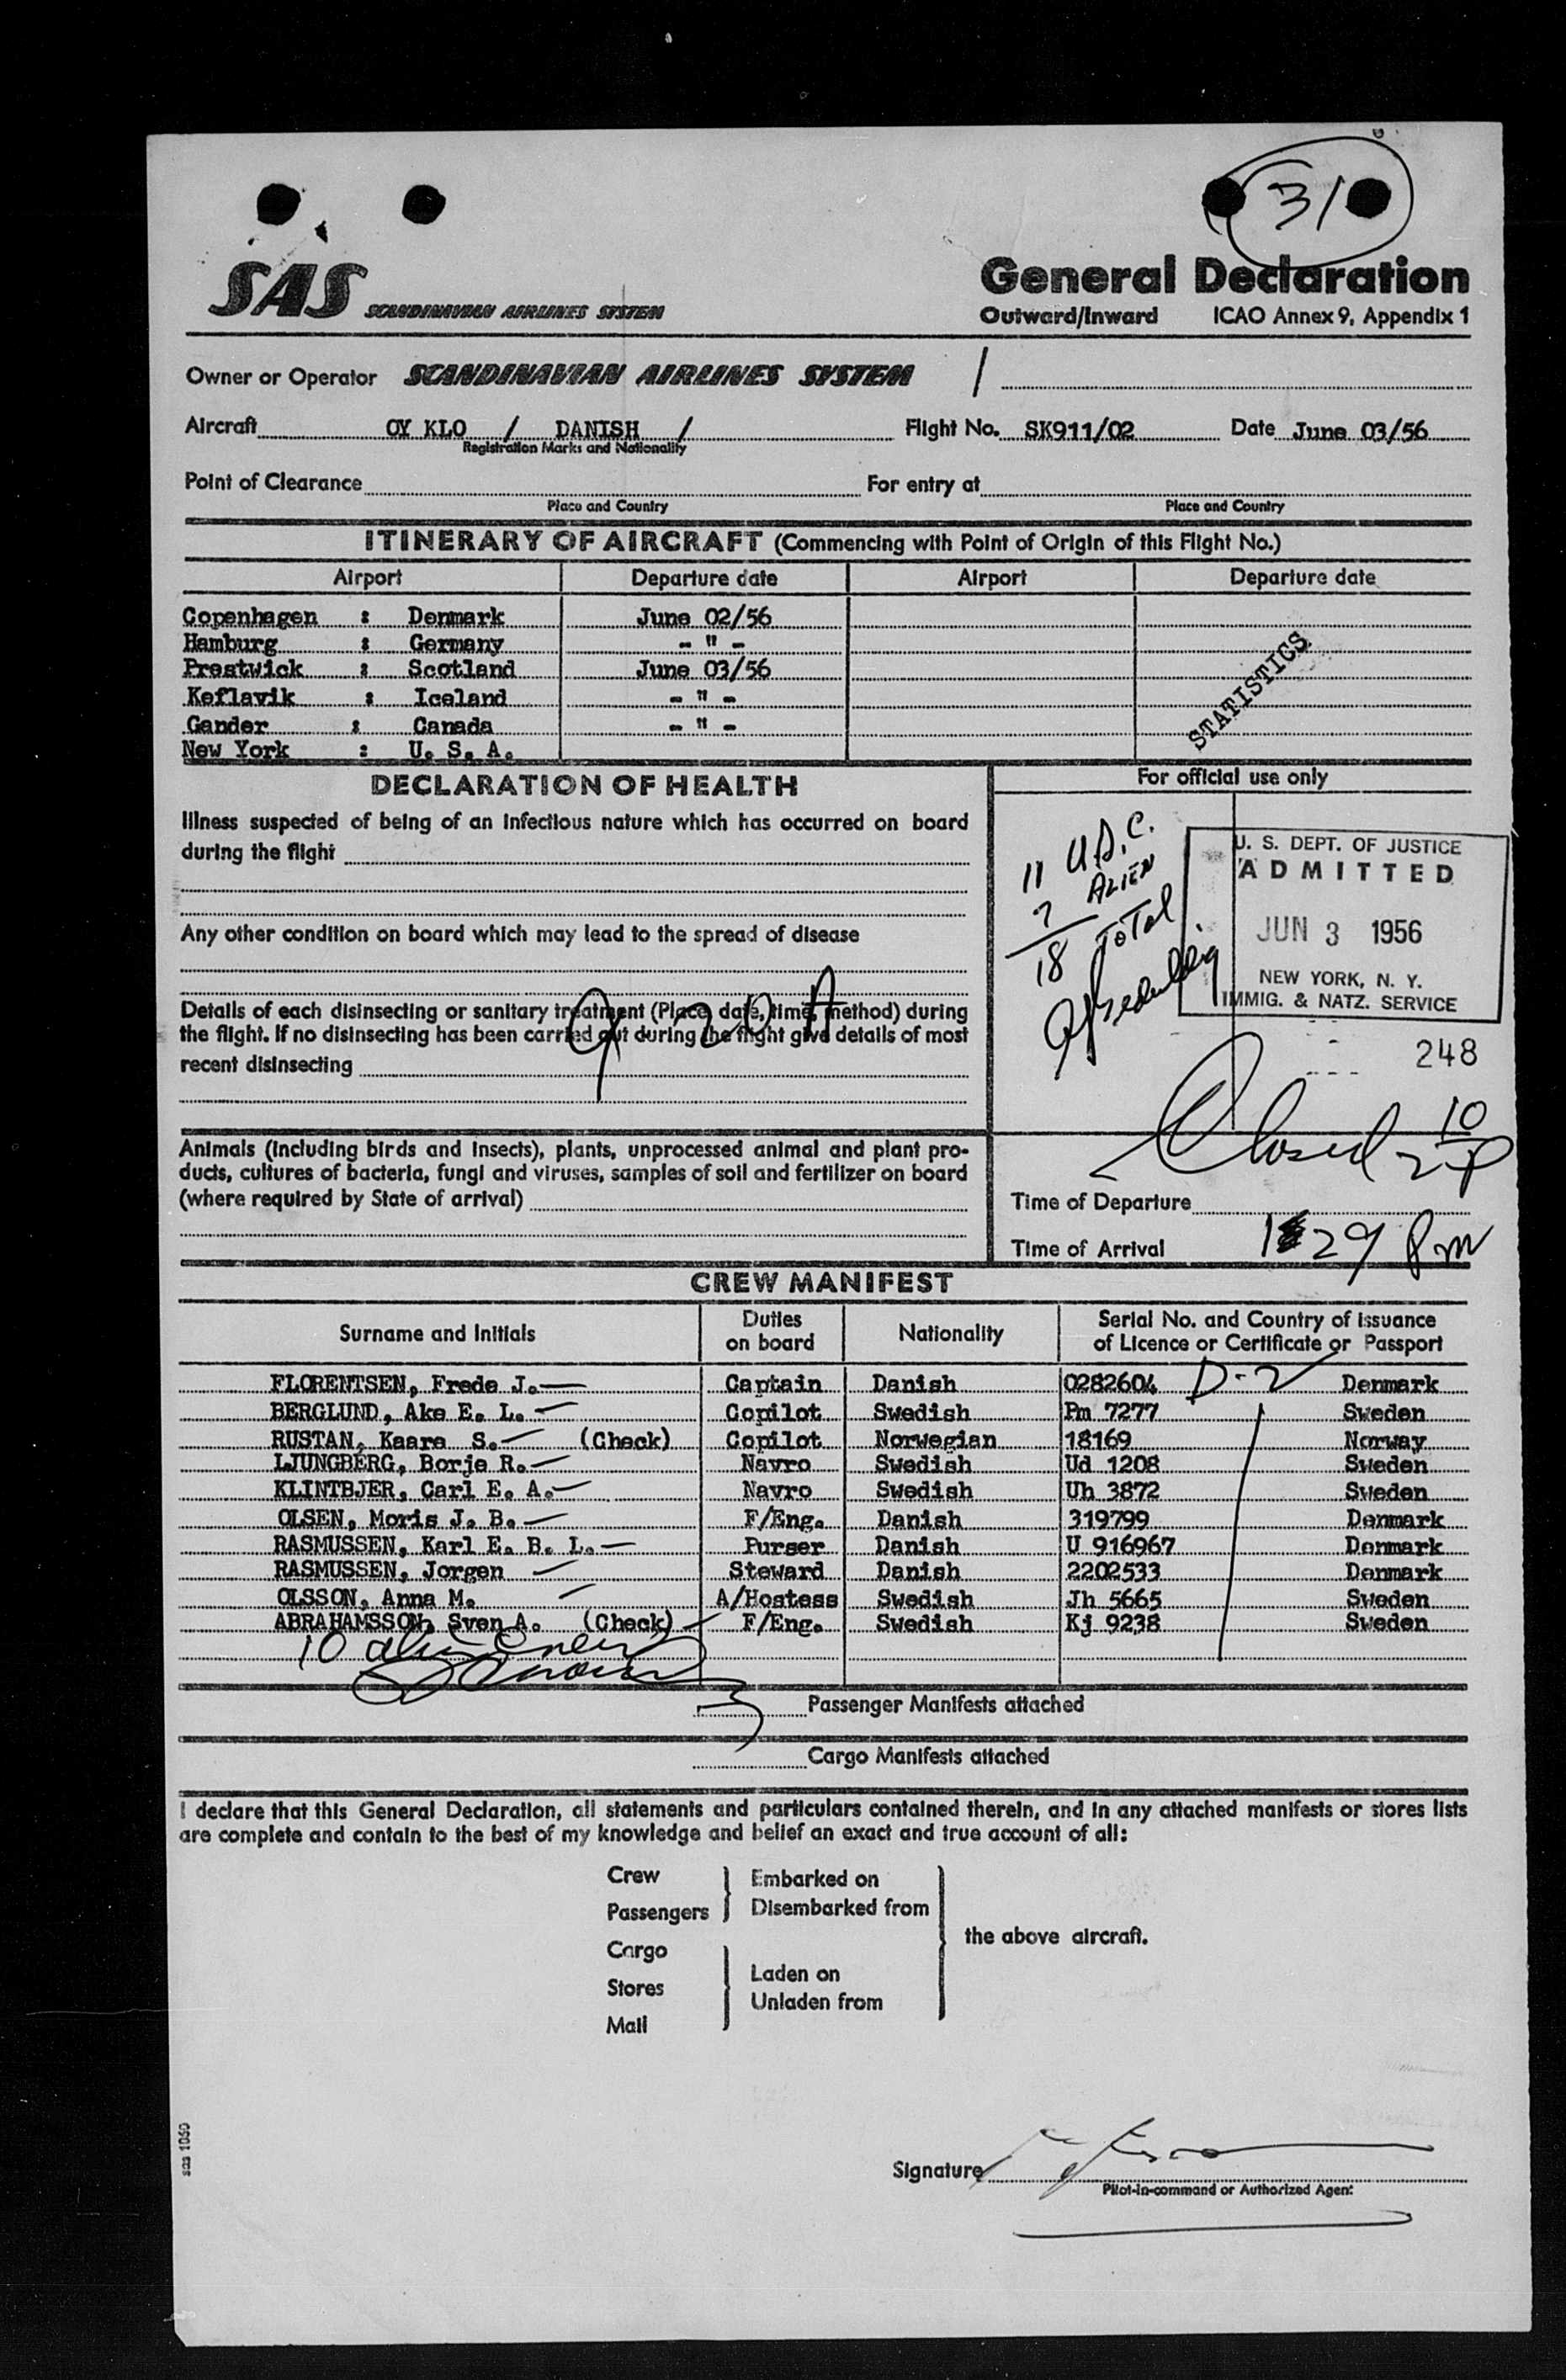 31
SAS SCANDINAVIAN AIRLINES SYSTEM
General Declaration
Outward/Inward ICAO Annex 9, Appendix 1
Owner or Operator SCANDINAVIAN AIRLINES SYSTEM /
Aircraft OY KLO / DANISH / Flight No. SK911/02 Date June 03/56
Registration Marks and Nationality
Point of Clearance For entry at
Place and Country Place and Country
ITINERARY OF AIRCRAFT (Commencing with Point of Origin of this Flight No.)
Airport Departure date Airport Departure date
Copenhagen : Denmark June 02/56
Hamburg : Germany - " -
Prestwick : Scotland June 03/56
Keflavik : Iceland - " -
Gander : Canada - " -
New York : U. S. A.
STATISTICS
DECLARATION OF HEALTH
Illness suspected of being of an infectious nature which has occurred on board
during the flight
Any other condition on board which may lead to the spread of disease
Details of each disinsecting or sanitary treatment (Place, date, time, method) during
the flight. If no disinsecting has been carried out during the flight give details of most
recent disinsecting
Animals (including birds and insects), plants, unprocessed animal and plant pro-
ducts, cultures of bacteria, fungi and viruses, samples of soil and fertilizer on board
(where required by State of arrival)
For official use only
11 U.S.C.
7 ALIEN
18 Total
U. S. DEPT. OF JUSTICE
ADMITTED
JUN 3 1956
NEW YORK, N. Y.
IMMIG. & NATZ. SERVICE
248
Closed 2 10 P
Time of Departure
Time of Arrival 1 29 Pm
CREW MANIFEST
Surname and Initials Duties on board Nationality Serial No. and Country of Issuance of Licence or Certificate or Passport
FLORENTSEN, Frede J. Captain Danish 0282604 D-2 Denmark
BERGLUND, Ake E. L. Copilot Swedish Pm 7277 Sweden
RUSTAN, Kaare S. (Check) Copilot Norwegian 18169 Norway
LJUNGBERG, Borje R. Navro Swedish Ud 1208 Sweden
KLINTBJER, Carl E. A. Navro Swedish Uh 3872 Sweden
OLSEN, Moris J. B. F/Eng. Danish 319799 Denmark
RASMUSSEN, Karl E. B. L. Purser Danish U 916967 Denmark
RASMUSSEN, Jorgen Steward Danish 2202533 Denmark
OLSSON, Anna M. A/Hostess Swedish Jh 5665 Sweden
ABRAHAMSSON, Sven A. (Check) F/Eng. Swedish Kj 9238 Sweden
10 alien crew
3 Passenger Manifests attached
Cargo Manifests attached
I declare that this General Declaration, all statements and particulars contained therein, and in any attached manifests or stores lists
are complete and contain to the best of my knowledge and belief an exact and true account of all:
Crew
Passengers
Embarked on
Disembarked from
Cargo
Stores
Mail
Laden on
Unladen from
the above aircraft.
sas 1050
Signature
Pilot-in-command or Authorized Agent